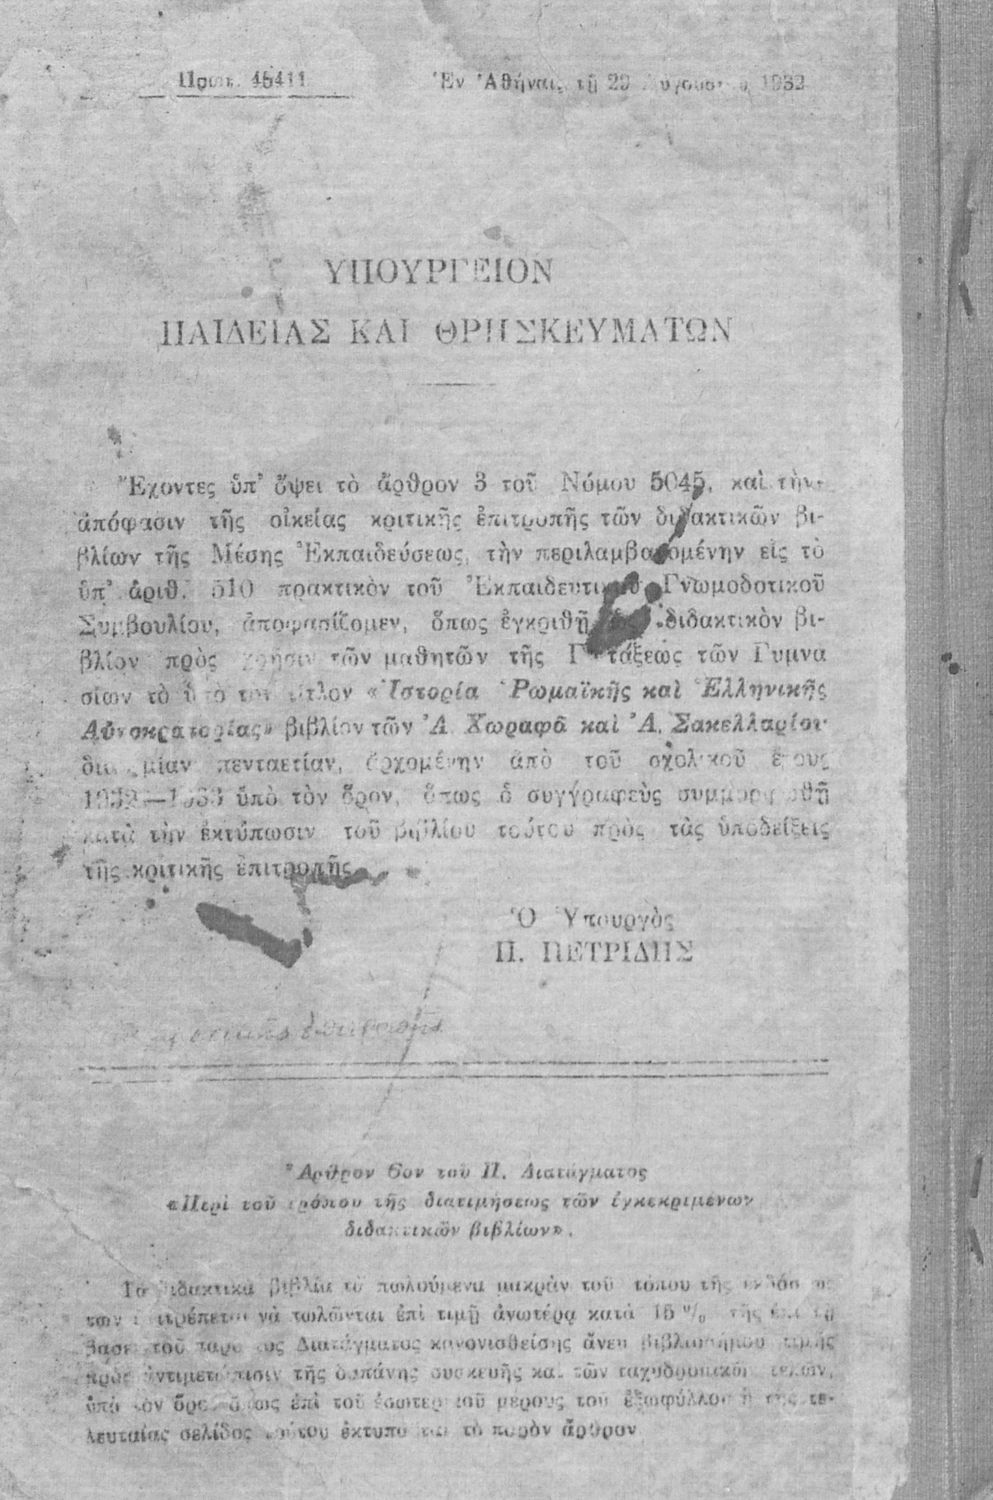 Πρωτ. 45411
Ἐν Ἀθήναις τῇ 29 Αὐγούστου 1932
ΥΠΟΥΡΓΕΙΟΝ
ΠΑΙΔΕΙΑΣ ΚΑΙ ΘΡΗΣΚΕΥΜΑΤΩΝ
Ἔχοντες ὑπ' ὄψει τὸ ἄρθρον 3 τοῦ Νόμου 5045, καὶ τὴν
ἀπόφασιν τῆς οἰκείας κριτικῆς ἐπιτροπῆς τῶν διδακτικῶν βι-
βλίων τῆς Μέσης Ἐκπαιδεύσεως, τὴν περιλαμβανομένην εἰς τὸ
ὑπ' ἀριθ. 510 πρακτικὸν τοῦ Ἐκπαιδευτικοῦ Γνωμοδοτικοῦ
Συμβουλίου, ἀποφασίζομεν, ὅπως ἐγκριθῇ ὡς διδακτικὸν βι-
βλίον πρὸς χρῆσιν τῶν μαθητῶν τῆς Γ' τάξεως τῶν Γυμνα
σίων τὸ ὑπὸ τὸν τίτλον «Ἱστορία Ῥωμαϊκῆς καὶ Ἑλληνικῆς
Αὐτοκρατορίας» βιβλίον τῶν Ἀ. Χωραφᾶ καὶ Ἀ. Σακελλαρίου
διὰ μίαν πενταετίαν, ἀρχομένην ἀπὸ τοῦ σχολικοῦ ἔτους
1932—1933 ὑπὸ τὸν ὅρον, ὅπως ὁ συγγραφεὺς συμμορφωθῇ
κατὰ τὴν ἐκτύπωσιν τοῦ βιβλίου τούτου πρὸς τὰς ὑποδείξεις
τῆς κριτικῆς ἐπιτροπῆς
Ὁ Ὑπουργὸς
Π. ΠΕΤΡΙΔΗΣ
Ἄρθρον 6ον τοῦ Π. Διατάγματος
«Περὶ τοῦ τρόπου τῆς διατιμήσεως τῶν ἐγκεκριμένων
διδακτικῶν βιβλίων».
Τὰ διδακτικὰ βιβλία τὰ πωλούμενα μακρὰν τοῦ τόπου τῆς ἐκδόσεώς
των ἐπιτρέπεται νὰ πωλῶνται ἐπὶ τιμῇ ἀνωτέρᾳ κατὰ 15 % τῆς ἐπὶ τῇ
βάσει τοῦ παρόντος Διατάγματος κανονισθείσης ἄνευ βιβλιοσήμου τιμῆς
πρὸς ἀντιμετώπισιν τῆς δαπάνης συσκευῆς καὶ τῶν ταχυδρομικῶν τελῶν,
ὑπὸ τὸν ὅρον ὅπως ἐπὶ τοῦ ἐσωτερικοῦ μέρους τοῦ ἐξωφύλλου ἢ τῆς τε-
λευταίας σελίδος τούτου ἐκτυποῦται τὸ παρὸν ἄρθρον